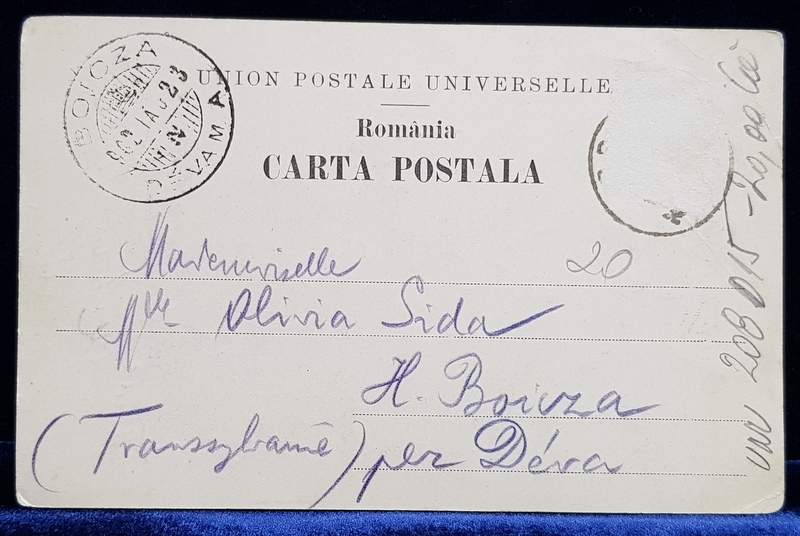 BOICZA
DÉVA M.
UNION POSTALE UNIVERSELLE
România
CARTA POSTALA
Mademoiselle
20
Mlle Olivia Sida
H. Boicza
(Transsylvanie) per Déva
20,00 Lei